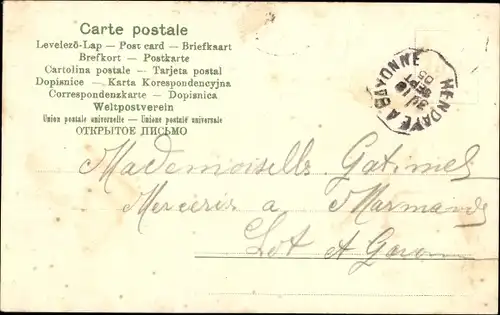 Carte postale
Levelező-Lap — Post card — Briefkaart
Brefkort — Postkarte
Cartolina postale — Tarjeta postal
Dopisnice — Karta Korespondencyjna
Correspondenzkarte — Dopisnica
Weltpostverein
Union postale universelle — Unione postale universale
ОТКРЫТОЕ ПИСЬМО
HENDAYE A BAYONNE
SEPT
05
Mademoiselle
Mercerie a Marmande
Lot et Garonne